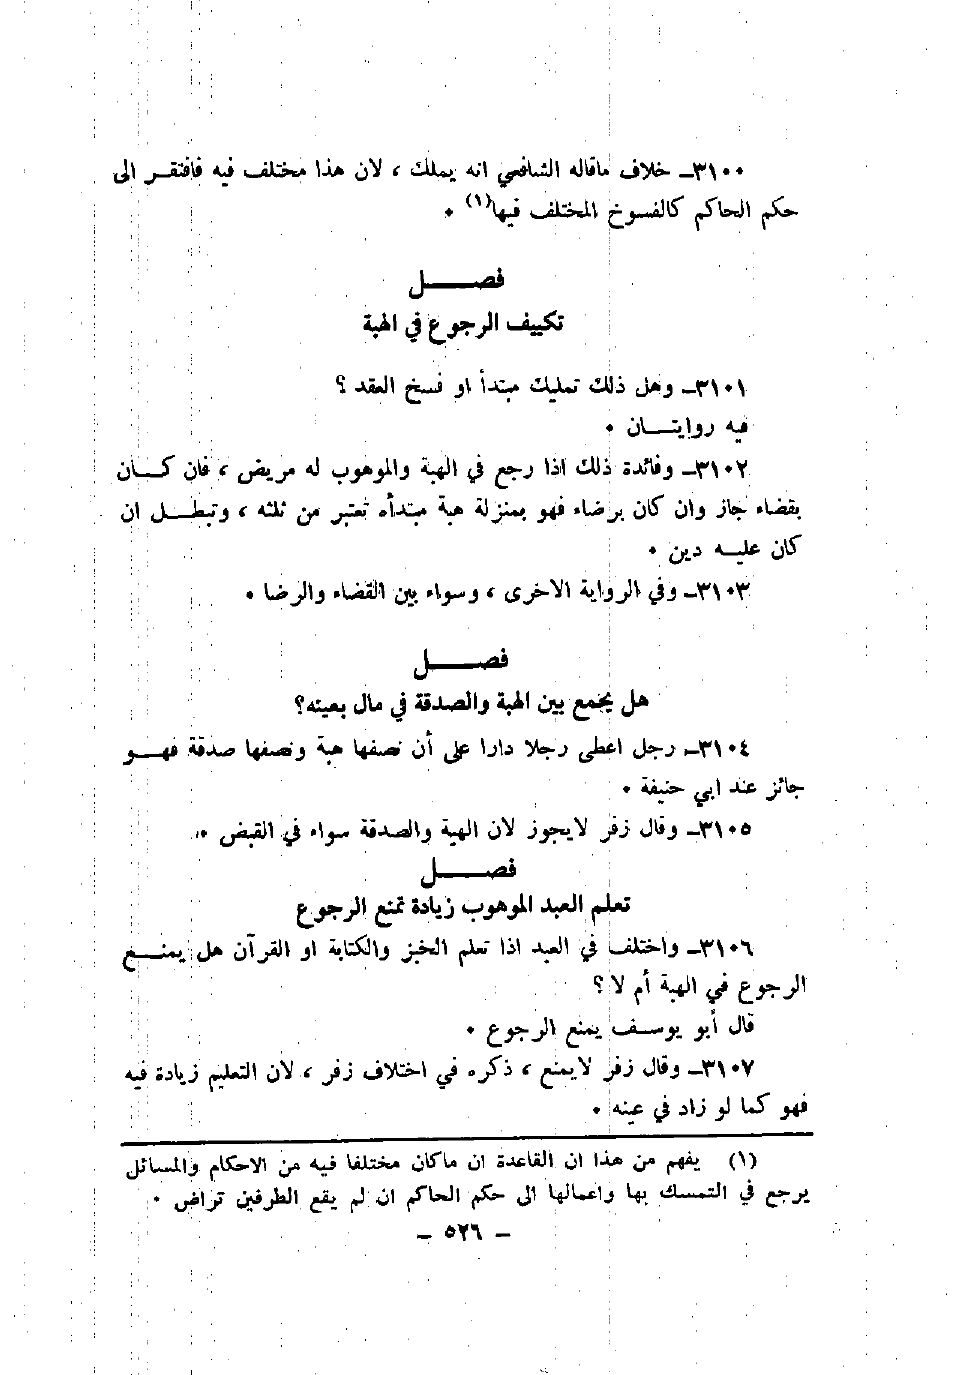 ٣١٠٠ـ خلاف ماقاله الشافعي انه يملك ، لان هذا مختلف فيه فافتقـر الى
حكم الحاكم كالفسوخ المختلف فيها(١) ٠
فصـــــل
تكييف الرجوع في الهبة
٣١٠١ـ وهل ذلك تمليك مبتدأ او فسخ العقد ؟
فيه روايتـــان ٠
٣١٠٢ـ وفائدة ذلك اذا رجع في الهبة والموهوب له مريض ، فان كـــان
بقضاء جاز وان كان برضاء فهو بمنزلة هبة مبتدأه تعتبر من ثلثه ، وتبطـــل ان
كان عليـــه دين ٠
٣١٠٣ـ وفي الرواية الاخرى ، وسواء بين القضاء والرضا ٠
فصـــــل
هل يجمع بين الهبة والصدقة في مال بعينه؟
٣١٠٤ـ رجل اعطى رجلا دارا على أن نصفها هبة ونصفها صدقة فهـــو
جائز عند ابي حنيفة ٠
٣١٠٥ـ وقال زفر لايجوز لان الهبة والصدقة سواء في القبض ٠
فصـــــل
تعلم العبد الموهوب زيادة تمنع الرجوع
٣١٠٦ـ واختلف في العبد اذا تعلم الخبز والكتابة او القرآن هل يمنـــع
الرجوع في الهبة أم لا ؟
قال أبو يوســف يمنع الرجوع ٠
٣١٠٧ـ وقال زفر لايمنع ، ذكره في اختلاف زفر ، لان التعليم زيادة فيه
فهو كما لو زاد في عينه ٠
(١) يفهم من هذا ان القاعدة ان ماكان مختلفا فيه من الاحكام والمسائل
يرجع في التمسك بها واعمالها الى حكم الحاكم ان لم يقع الطرفين تراض ٠
ـ ٥٢٦ ـ